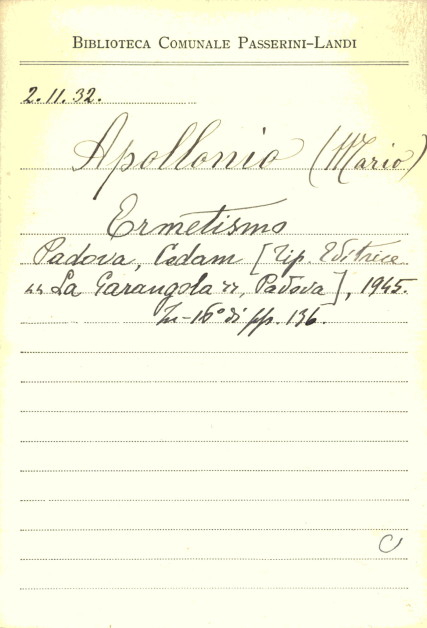 BIBLIOTECA COMUNALE PASSERINI-LANDI
2.11.32.
Apollonio (Mario)
Ermetismo
Padova, Cedam [Tip. Editrice
"La Garangola", Padova], 1945.
In-16° di pp. 136.
C